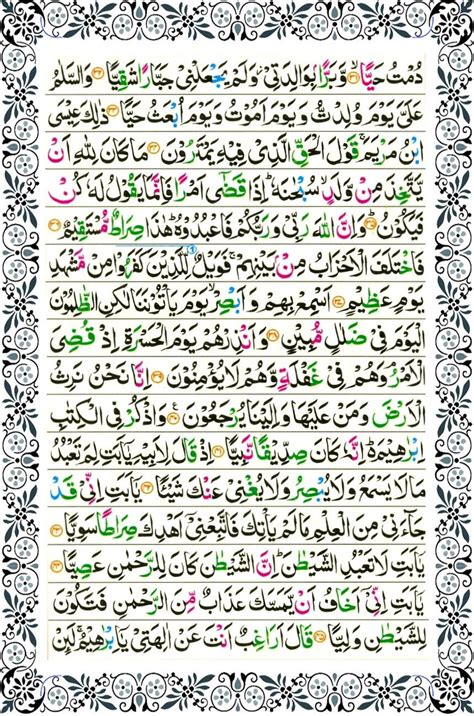 دُمْتُ حَيًّا ۝٣١ وَّبَرًّۢا بِوَالِدَتِیْ وَلَمْ یَجْعَلْنِیْ جَبَّارًا شَقِیًّا ۝٣٢ وَالسَّلٰمُ
عَلَیَّ یَوْمَ وُلِدْتُّ وَیَوْمَ اَمُوْتُ وَیَوْمَ اُبْعَثُ حَیًّا ۝٣٣ ذٰلِكَ عِیْسَی
ابْنُ مَرْیَمَ ۚ قَوْلَ الْحَقِّ الَّذِیْ فِیْهِ یَمْتَرُوْنَ ۝٣٤ مَا كَانَ لِلّٰهِ اَنْ
یَّتَّخِذَ مِنْ وَّلَدٍ ۙ سُبْحٰنَهٗ ؕ اِذَا قَضٰۤی اَمْرًا فَاِنَّمَا یَقُوْلُ لَهٗ كُنْ
فَیَكُوْنُ ۝٣٥ وَاِنَّ اللّٰهَ رَبِّیْ وَرَبُّكُمْ فَاعْبُدُوْهُ ؕ هٰذَا صِرَاطٌ مُّسْتَقِیْمٌ ۝٣٦
فَاخْتَلَفَ الْاَحْزَابُ مِنْۢ بَیْنِهِمْ ۚ فَوَیْلٌ لِّلَّذِیْنَ كَفَرُوْا مِنْ مَّشْهَدِ
یَوْمٍ عَظِیْمٍ ۝٣٧ اَسْمِعْ بِهِمْ وَاَبْصِرْ ۙ یَوْمَ یَاْتُوْنَنَا لٰكِنِ الظّٰلِمُوْنَ
الْیَوْمَ فِیْ ضَلٰلٍ مُّبِیْنٍ ۝٣٨ وَاَنْذِرْهُمْ یَوْمَ الْحَسْرَةِ اِذْ قُضِیَ
الْاَمْرُ ۘ وَهُمْ فِیْ غَفْلَةٍ وَّهُمْ لَا یُؤْمِنُوْنَ ۝٣٩ اِنَّا نَحْنُ نَرِثُ
الْاَرْضَ وَمَنْ عَلَیْهَا وَاِلَیْنَا یُرْجَعُوْنَ ۝٤٠ وَاذْكُرْ فِی الْكِتٰبِ
اِبْرٰهِیْمَ ؕ اِنَّهٗ كَانَ صِدِّیْقًا نَّبِیًّا ۝٤١ اِذْ قَالَ لِاَبِیْهِ یٰۤاَبَتِ لِمَ تَعْبُدُ
مَا لَا یَسْمَعُ وَلَا یُبْصِرُ وَلَا یُغْنِیْ عَنْكَ شَیْـًٔا ۝٤٢ یٰۤاَبَتِ اِنِّیْ قَدْ
جَآءَنِیْ مِنَ الْعِلْمِ مَا لَمْ یَاْتِكَ فَاتَّبِعْنِیْۤ اَهْدِكَ صِرَاطًا سَوِیًّا ۝٤٣
یٰۤاَبَتِ لَا تَعْبُدِ الشَّیْطٰنَ ؕ اِنَّ الشَّیْطٰنَ كَانَ لِلرَّحْمٰنِ عَصِیًّا ۝٤٤
یٰۤاَبَتِ اِنِّیْۤ اَخَافُ اَنْ یَّمَسَّكَ عَذَابٌ مِّنَ الرَّحْمٰنِ فَتَكُوْنَ
لِلشَّیْطٰنِ وَلِیًّا ۝٤٥ قَالَ اَرَاغِبٌ اَنْتَ عَنْ اٰلِهَتِیْ یٰۤاِبْرٰهِیْمُ ۚ لَىِٕنْ